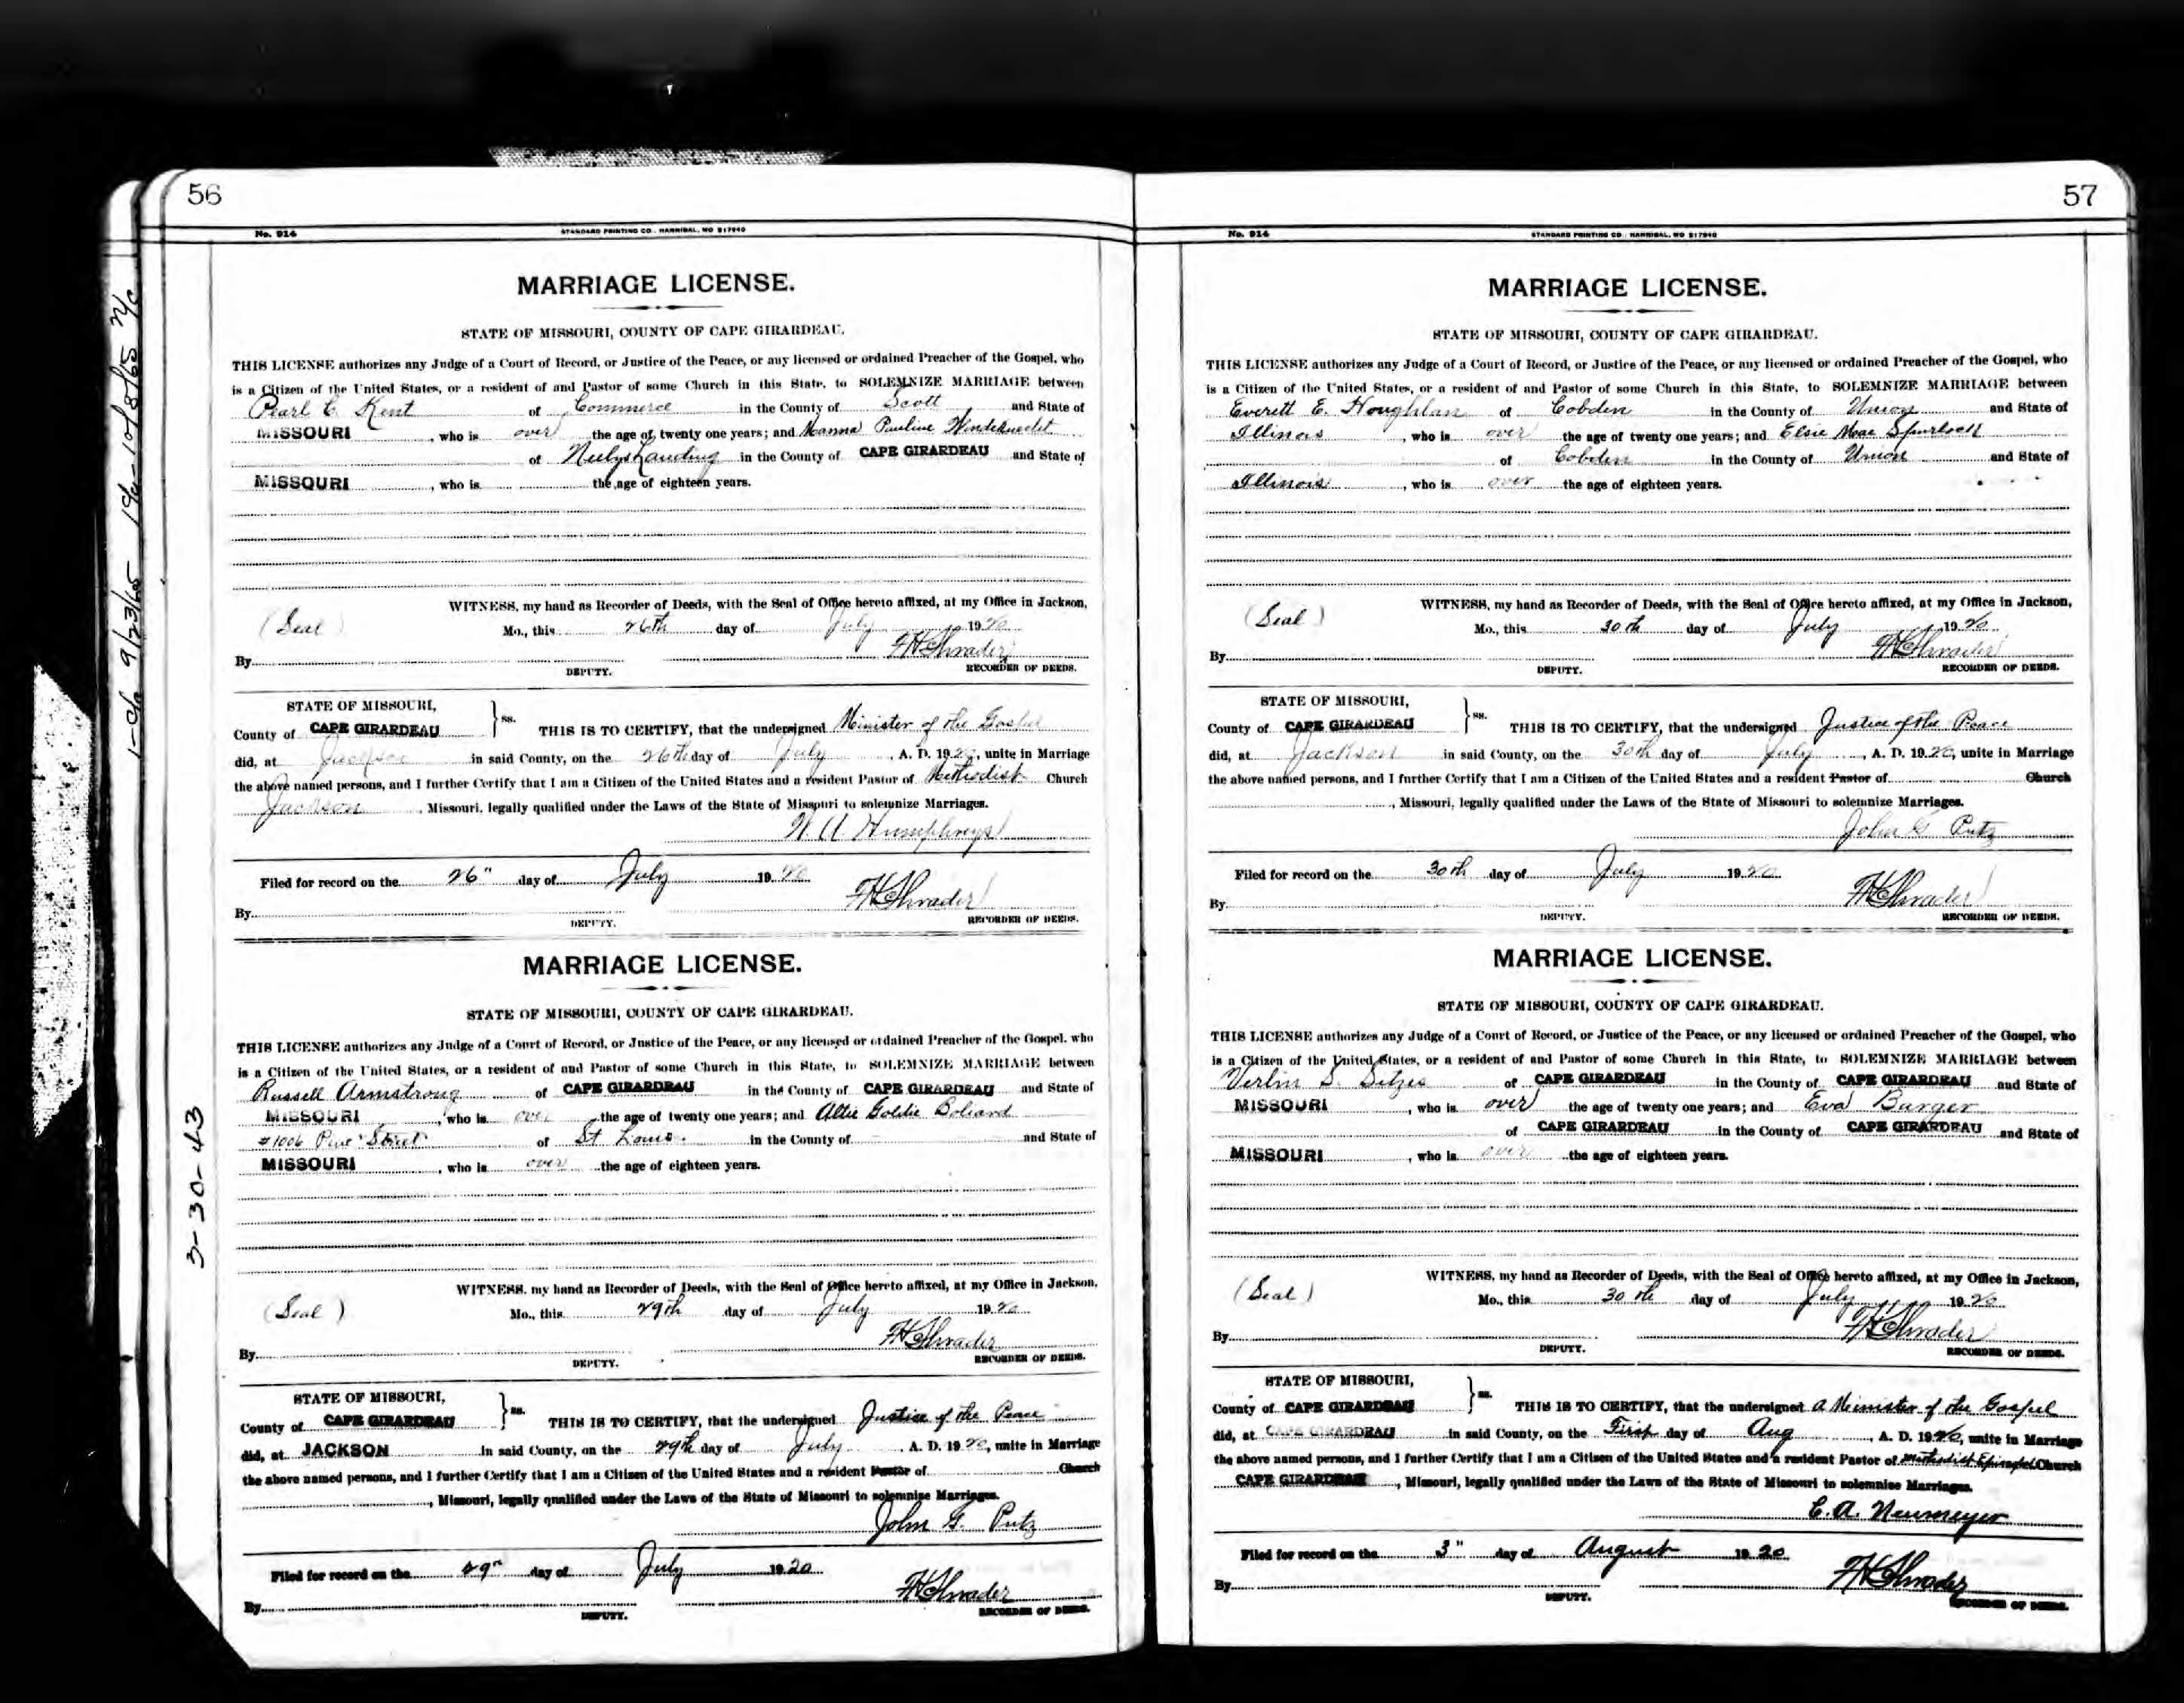 56
No. 914 STANDARD PRINTING CO., HANNIBAL, MO 217940
MARRIAGE LICENSE.
STATE OF MISSOURI, COUNTY OF CAPE GIRARDEAU.
THIS LICENSE authorizes any Judge of a Court of Record, or Justice of the Peace, or any licensed or ordained Preacher of the Gospel, who
is a Citizen of the United States, or a resident of and Pastor of some Church in this State, to SOLEMNIZE MARRIAGE between
Pearl C. Kent of Commerce in the County of Scott and State of
MISSOURI, who is over the age of twenty one years; and Pauline
of Neelys Landing in the County of CAPE GIRARDEAU and State of
MISSOURI, who is the age of eighteen years.
WITNESS, my hand as Recorder of Deeds, with the Seal of Office hereto affixed, at my Office in Jackson,
(Seal) Mo., this 26th day of July 1920
By
DEPUTY. RECORDER OF DEEDS.
STATE OF MISSOURI,
County of CAPE GIRARDEAU } ss. THIS IS TO CERTIFY, that the undersigned Minister of the Gospel
did, at Jackson in said County, on the 26th day of July, A. D. 1920, unite in Marriage
the above named persons, and I further Certify that I am a Citizen of the United States and a resident Pastor of Methodist Church
Jackson, Missouri, legally qualified under the Laws of the State of Missouri to solemnize Marriages.
Humphreys
Filed for record on the 26" day of July 1920
By
DEPUTY. RECORDER OF DEEDS.
MARRIAGE LICENSE.
STATE OF MISSOURI, COUNTY OF CAPE GIRARDEAU.
THIS LICENSE authorizes any Judge of a Court of Record, or Justice of the Peace, or any licensed or ordained Preacher of the Gospel, who
is a Citizen of the United States, or a resident of and Pastor of some Church in this State, to SOLEMNIZE MARRIAGE between
Russell Armstrong of CAPE GIRARDEAU in the County of CAPE GIRARDEAU and State of
MISSOURI, who is over the age of twenty one years; and Goldie
#1006 Pine Street of St Louis. in the County of and State of
MISSOURI, who is over the age of eighteen years.
WITNESS, my hand as Recorder of Deeds, with the Seal of Office hereto affixed, at my Office in Jackson,
(Seal) Mo., this 29th day of July 1920
By
DEPUTY. RECORDER OF DEEDS.
STATE OF MISSOURI,
County of CAPE GIRARDEAU } ss. THIS IS TO CERTIFY, that the undersigned Justice of the Peace
did, at JACKSON in said County, on the 29th day of July, A. D. 1920, unite in Marriage
the above named persons, and I further Certify that I am a Citizen of the United States and a resident Pastor of Church
, Missouri, legally qualified under the Laws of the State of Missouri to solemnize Marriages.
John G. Putz
Filed for record on the 29" day of July 1920
By
DEPUTY. RECORDER OF DEEDS.
3-30-43
57
No. 914 STANDARD PRINTING CO., HANNIBAL, MO 217940
MARRIAGE LICENSE.
STATE OF MISSOURI, COUNTY OF CAPE GIRARDEAU.
THIS LICENSE authorizes any Judge of a Court of Record, or Justice of the Peace, or any licensed or ordained Preacher of the Gospel, who
is a Citizen of the United States, or a resident of and Pastor of some Church in this State, to SOLEMNIZE MARRIAGE between
Everett E. Houghlan of Cobden in the County of Union and State of
Illinois, who is over the age of twenty one years; and Elsie Mae Spurlock
of Cobden in the County of Union and State of
Illinois, who is over the age of eighteen years.
WITNESS, my hand as Recorder of Deeds, with the Seal of Office hereto affixed, at my Office in Jackson,
(Seal) Mo., this 30th day of July 1920
By
DEPUTY. RECORDER OF DEEDS.
STATE OF MISSOURI,
County of CAPE GIRARDEAU } ss. THIS IS TO CERTIFY, that the undersigned Justice of the Peace
did, at Jackson in said County, on the 30th day of July, A. D. 1920, unite in Marriage
the above named persons, and I further Certify that I am a Citizen of the United States and a resident Pastor of Church
, Missouri, legally qualified under the Laws of the State of Missouri to solemnize Marriages.
John G Putz
Filed for record on the 30th day of July 1920
By
DEPUTY. RECORDER OF DEEDS.
MARRIAGE LICENSE.
STATE OF MISSOURI, COUNTY OF CAPE GIRARDEAU.
THIS LICENSE authorizes any Judge of a Court of Record, or Justice of the Peace, or any licensed or ordained Preacher of the Gospel, who
is a Citizen of the United States, or a resident of and Pastor of some Church in this State, to SOLEMNIZE MARRIAGE between
Verlin S. Sitzes of CAPE GIRARDEAU in the County of CAPE GIRARDEAU and State of
MISSOURI, who is over the age of twenty one years; and Eva Barger
of CAPE GIRARDEAU in the County of CAPE GIRARDEAU and State of
MISSOURI, who is over the age of eighteen years.
WITNESS, my hand as Recorder of Deeds, with the Seal of Office hereto affixed, at my Office in Jackson,
(Seal) Mo., this 30th day of July 1920
By
DEPUTY. RECORDER OF DEEDS.
STATE OF MISSOURI,
County of CAPE GIRARDEAU } ss. THIS IS TO CERTIFY, that the undersigned a Minister of the Gospel
did, at CAPE GIRARDEAU in said County, on the First day of Aug, A. D. 1920, unite in Marriage
the above named persons, and I further Certify that I am a Citizen of the United States and a resident Pastor of Methodist Episcopal Church
CAPE GIRARDEAU, Missouri, legally qualified under the Laws of the State of Missouri to solemnize Marriages.
C. A. Neumeyer
Filed for record on the 3" day of August 1920
By
DEPUTY. RECORDER OF DEEDS.